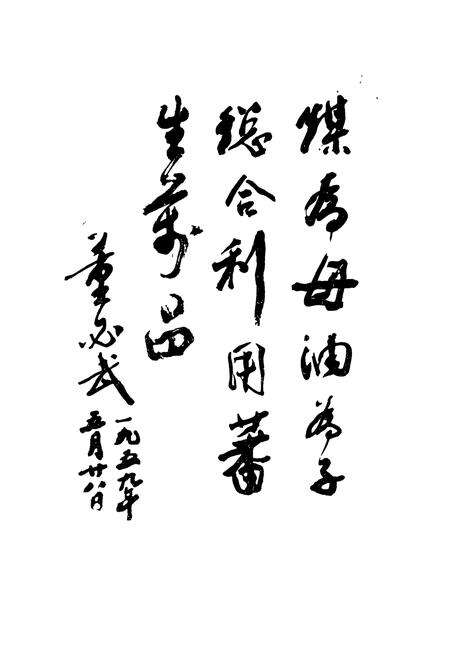 煤為母油為子
総合利用蕃
生萬品
董必武
一九五九年
五月廿八日